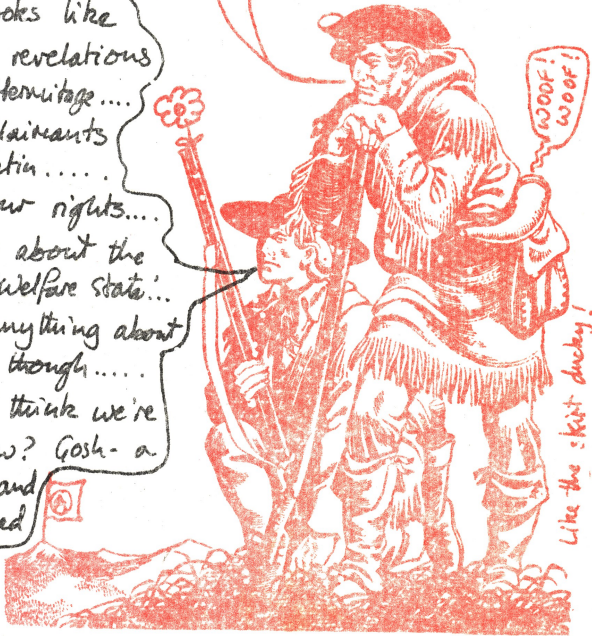 ooks like
revelations
ermitage....
laimants
etin.....
ur rights....
about the
Welfare State'..
nything about
though.....
think we're
w? Gosh - a
and
ed
WOOF!
WOOF!
Like the skirt ducky!